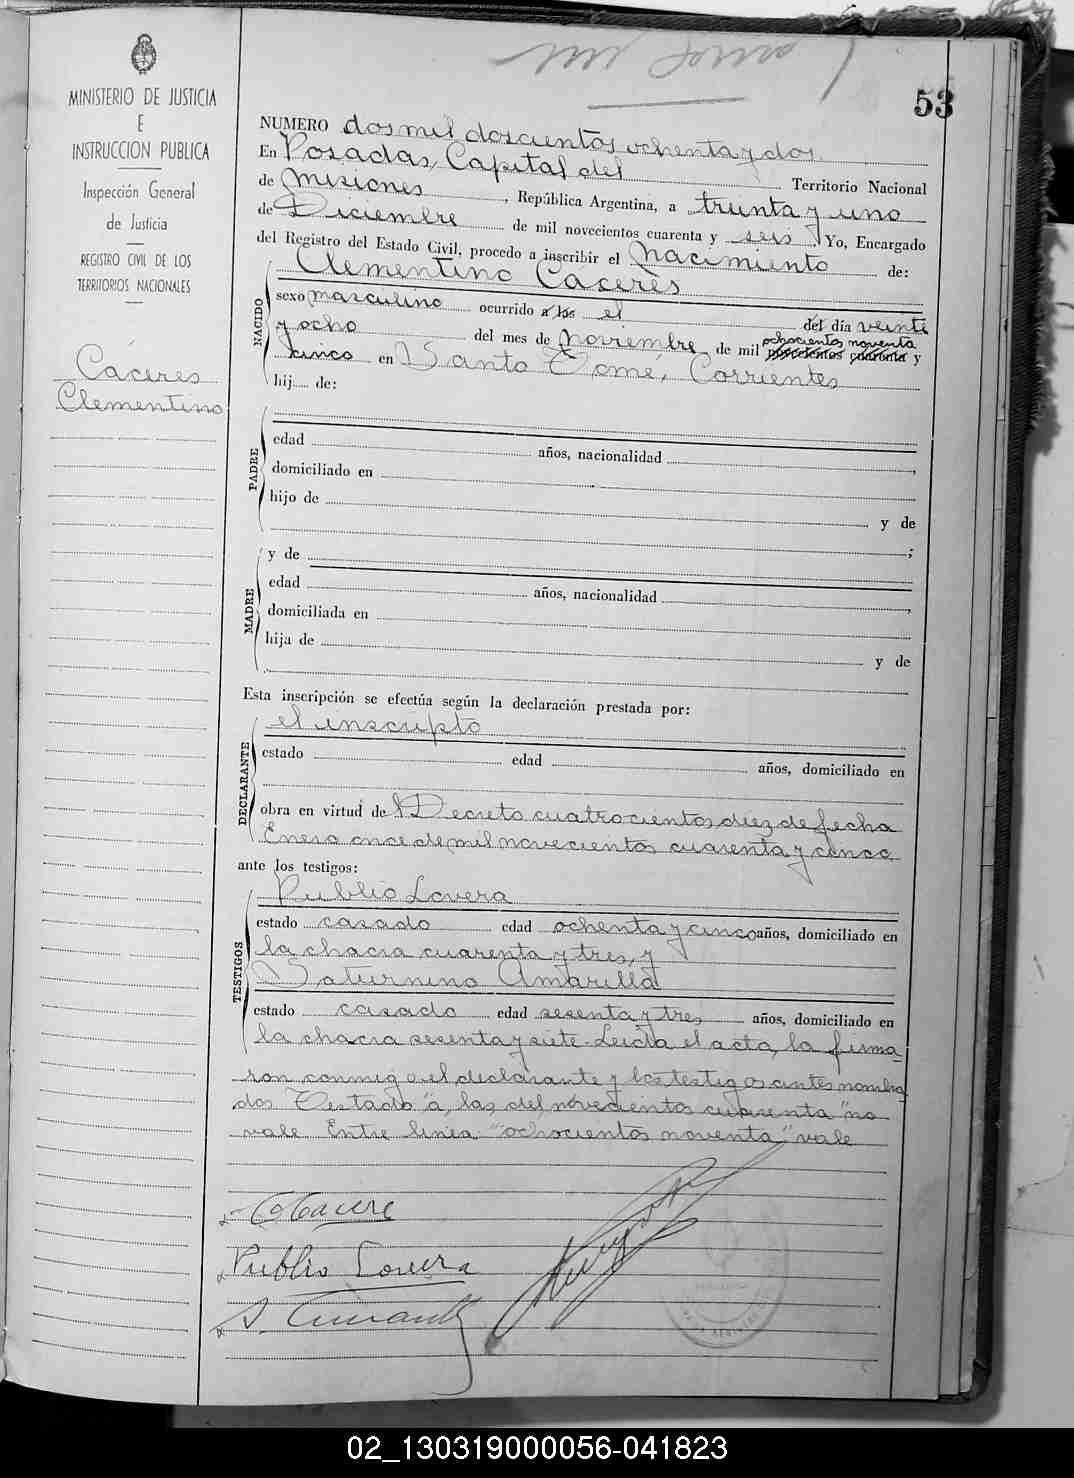 53
MINISTERIO DE JUSTICIA
E
INSTRUCCION PUBLICA
Inspección General
de Justicia
REGISTRO CIVIL DE LOS
TERRITORIOS NACIONALES
Cáceres
Clementino
NUMERO dos mil doscientos ochenta y dos.
En Posadas, Capital del Territorio Nacional
de Misiones, República Argentina, a treinta y uno
de Diciembre de mil novecientos cuarenta y seis. Yo, Encargado
del Registro del Estado Civil, procedo a inscribir el nacimiento de:
NACIDO
Clementino Cáceres
sexo masculino ocurrido a las el del día veinte
y ocho del mes de Noviembre de mil novecientos cuarenta y
ochocientos noventa
cinco en Santo Tomé, Corrientes
hij de:
PADRE
edad años, nacionalidad ,
domiciliado en
hijo de y de
;
MADRE
y de
edad años, nacionalidad ,
domiciliada en
hija de y de
Esta inscripción se efectúa según la declaración prestada por:
DECLARANTE
el inscripto
estado edad años, domiciliado en
obra en virtud de Decreto cuatrocientos diez de fecha
Enero once de mil novecientos cuarenta y cinco
ante los testigos:
TESTIGOS
Publio Lovera
estado casado edad ochenta y cinco años, domiciliado en
la chacra cuarenta y tres, y
Saturnino Amarilla
estado casado edad sesenta y tres años, domiciliado en
la chacra sesenta y siete. Leida el acta, la firma-
ron conmigo el declarante y los testigos antes nombra
dos Testado "a las del novecientos cuarenta" no
vale Entre linea "ochocientos noventa" vale
Publio Lovera
02_130319000056-041823